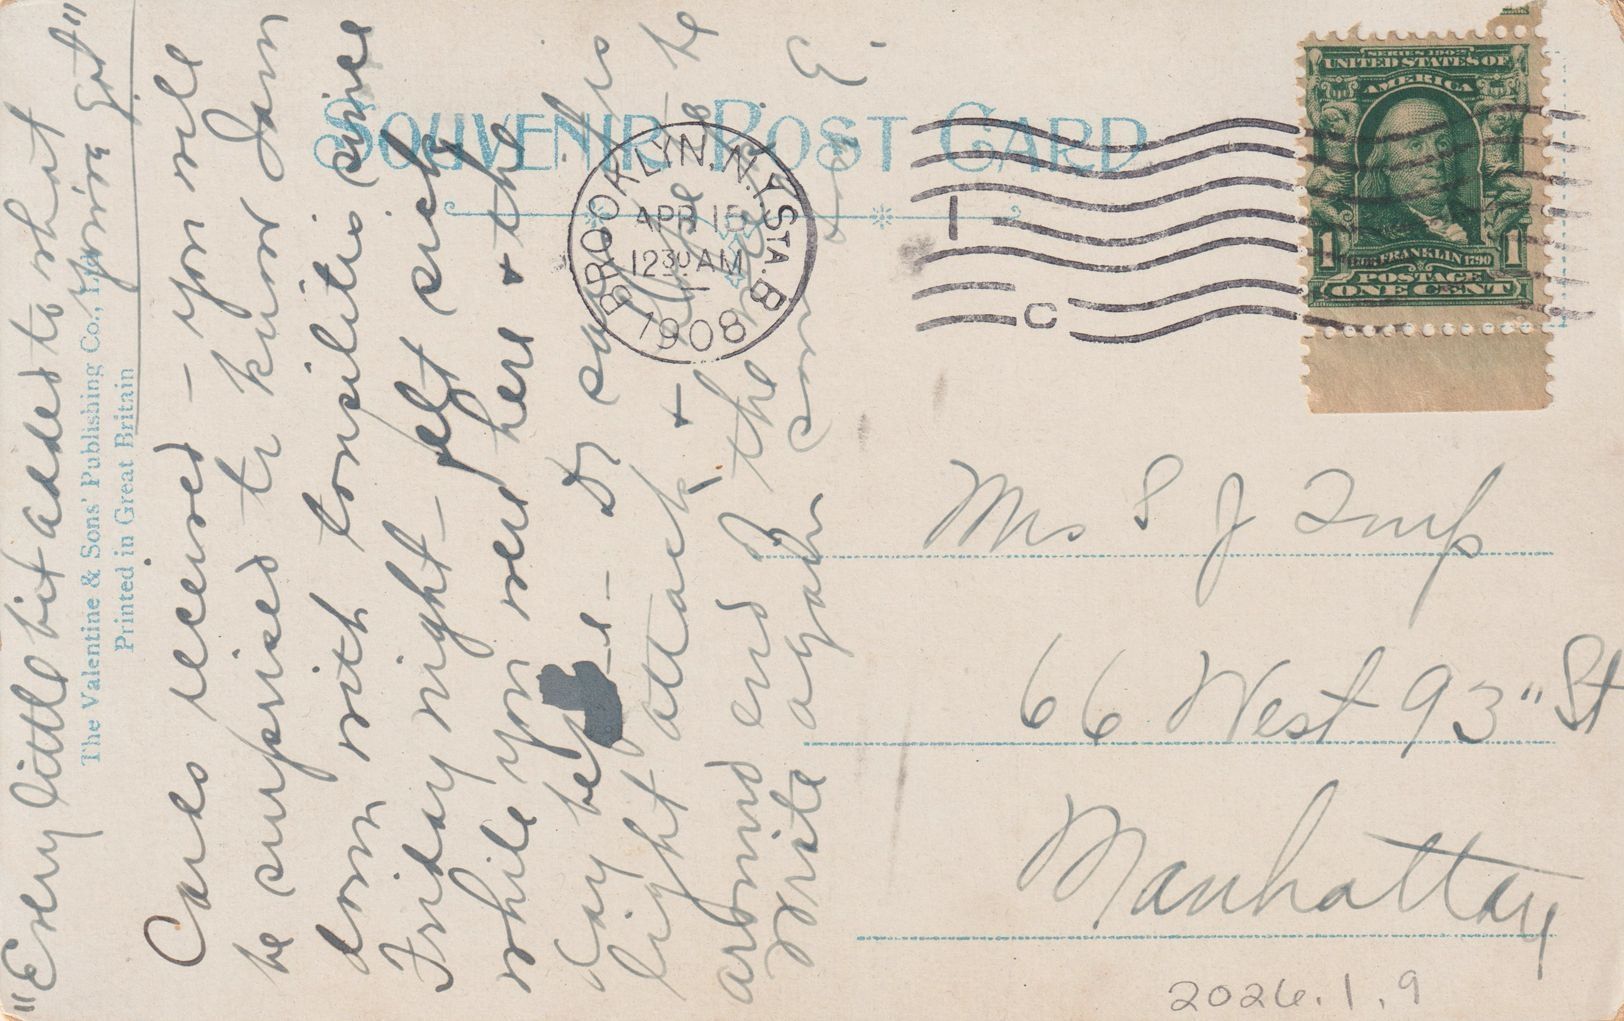 SOUVENIR POST CARD
"Every little bit added to what
you've got"
The Valentine & Sons' Publishing Co., Ltd.
Printed in Great Britain
Cards received - you will
be surprised to know I am
down with tonsilitis since
Friday night - felt sick
while you were here & the
day before - Dr says its
light attack & hope to be
around end the week
Write again soon
E.
BROOKLYN, N.Y. STA. B.
APR 15
1230 AM
1908
1
C
SERIES 1902
UNITED STATES OF
AMERICA
1 1
FRANKLIN 1790
POSTAGE
ONE CENT
Mrs S J
66 West 93" St
Manhattan
2026.1.9